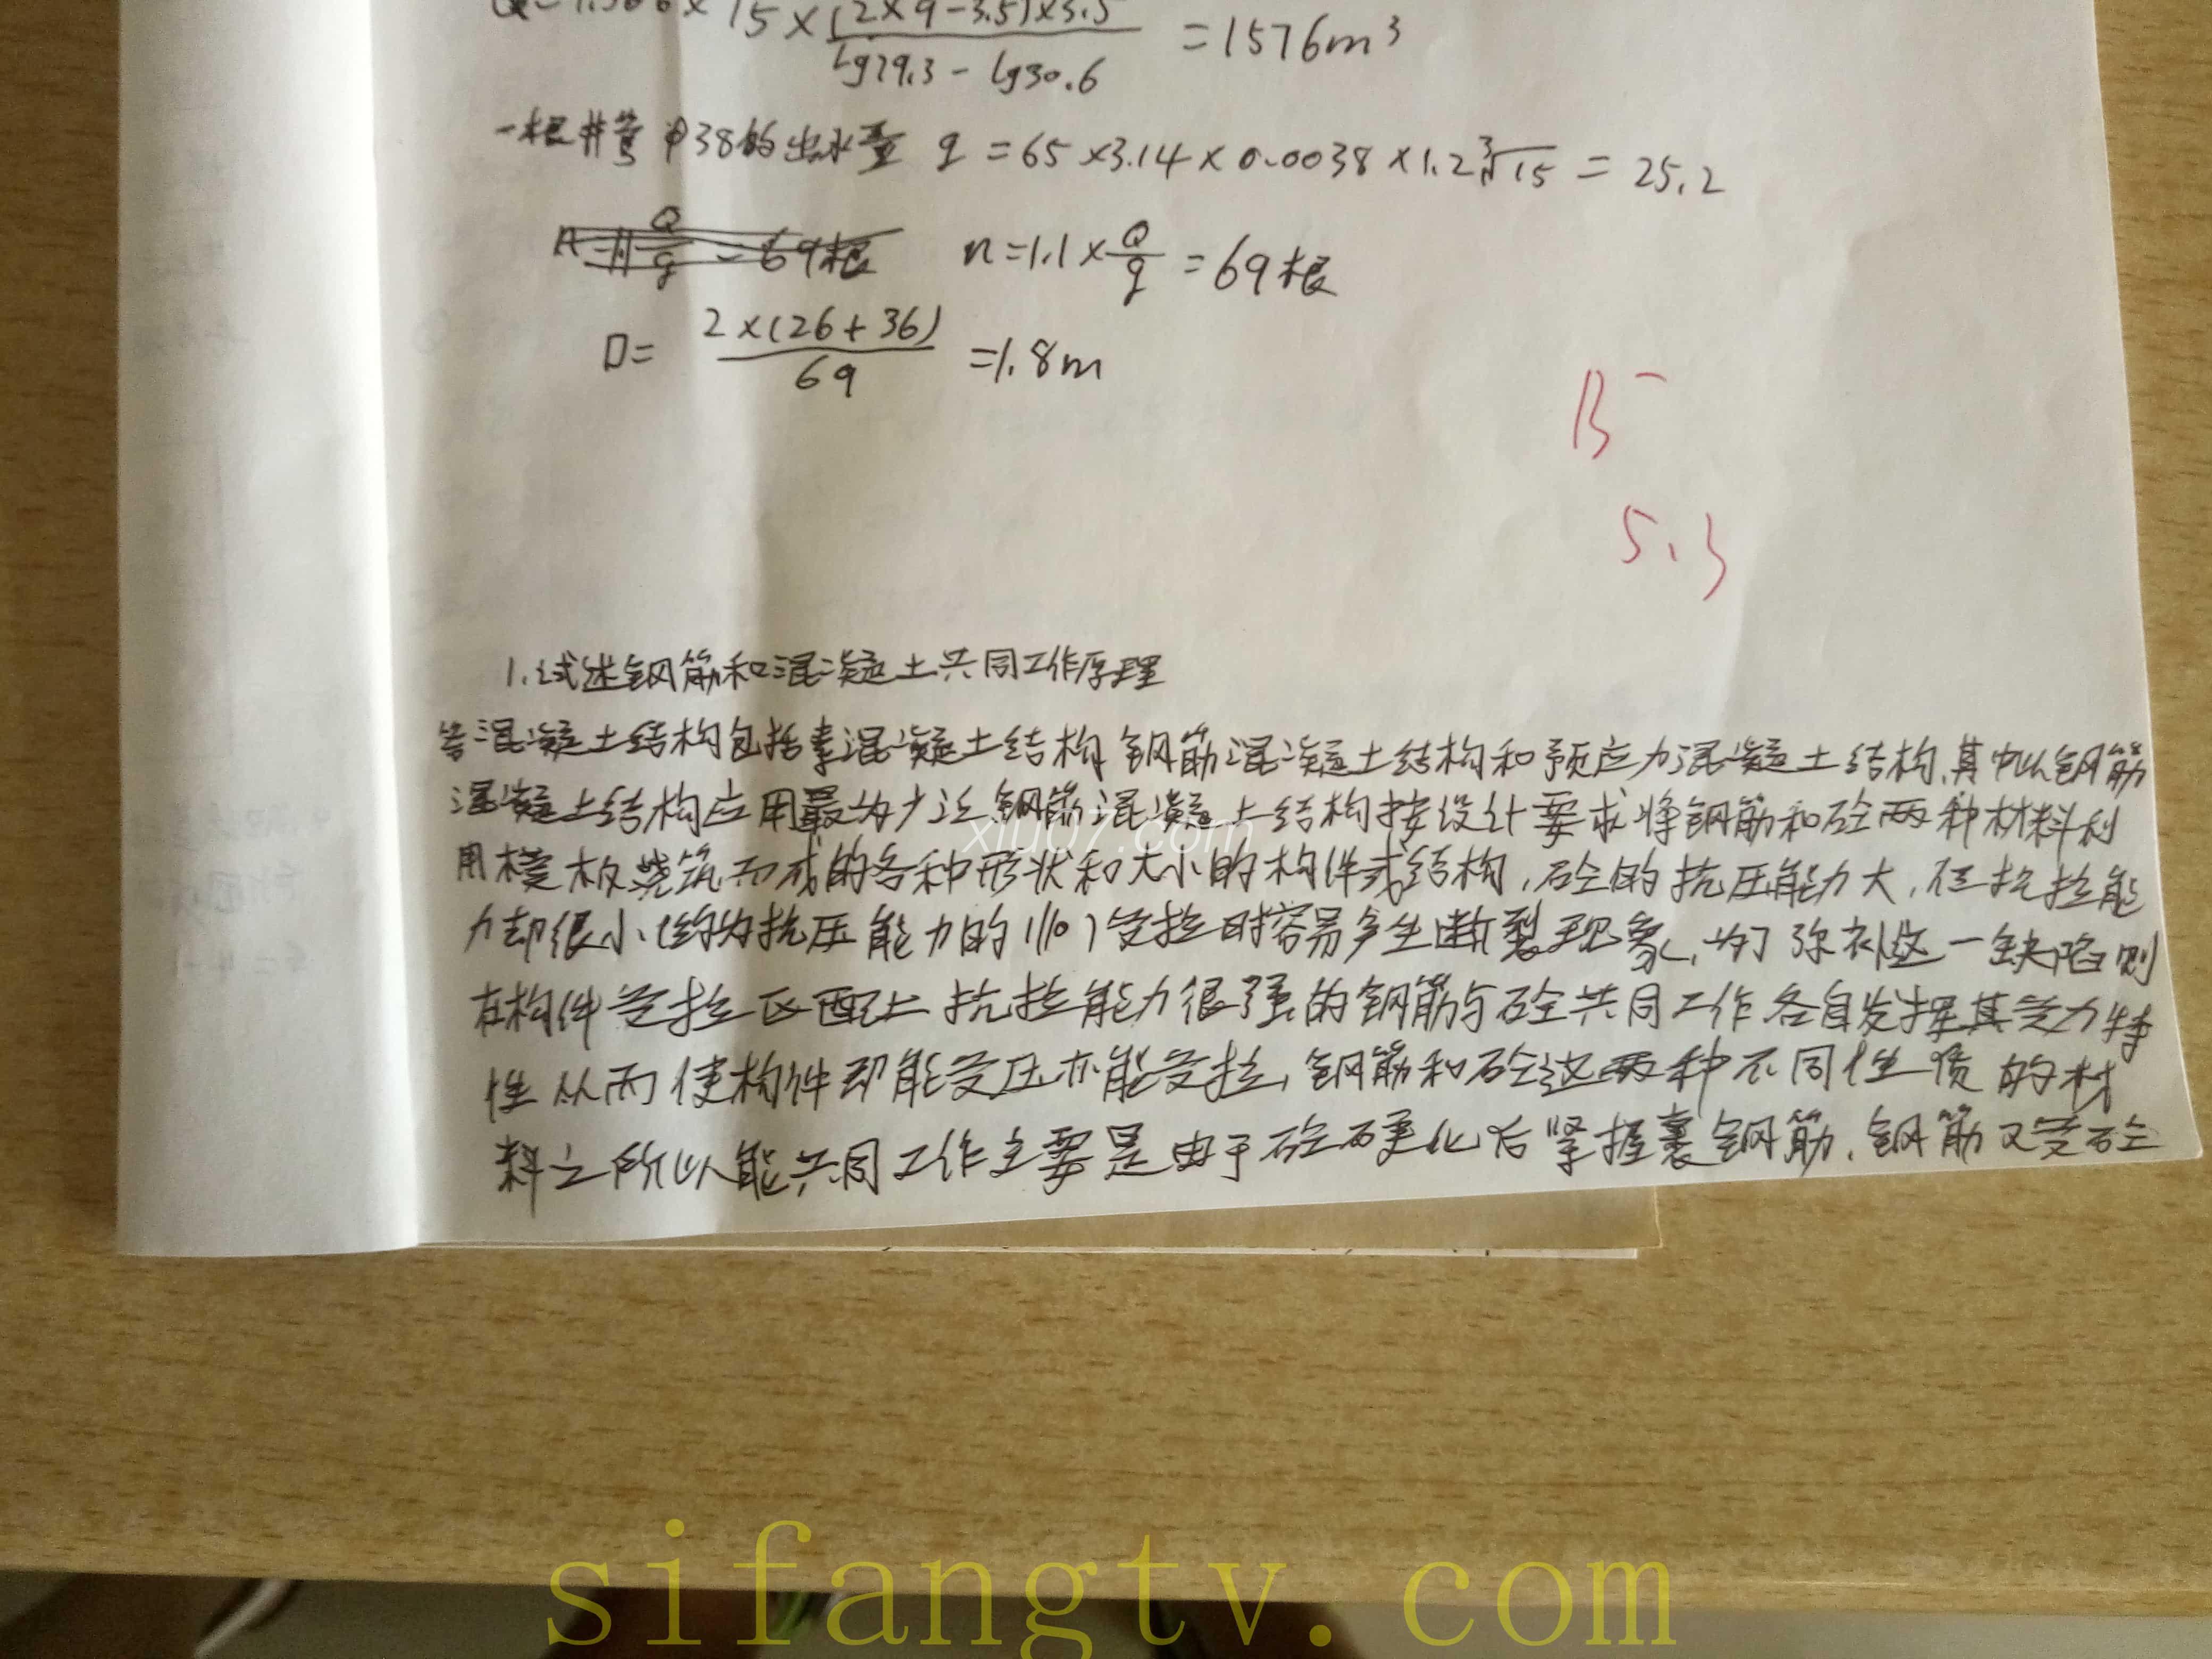 Q=1.366×15×(2×9-3.5)×3.5/lg79.3-lg30.6 =1576m³
一根井管φ38的出水量 q=65×3.14×0.0038×1.2³√15=25.2
n=1.1×Q/q=69根
D=2×(26+36)/69=1.8m
B⁻
5.3
1.试述钢筋和混凝土共同工作原理
答混凝土结构包括素混凝土结构钢筋混凝土结构和预应力混凝土结构,其中以钢筋
混凝土结构应用最为广泛钢筋混凝土结构按设计要求将钢筋和砼两种材料利
用模板浇筑而成的各种形状和大小的构件或结构,砼的抗压能力大,但抗拉能
力却很小(约为抗压能力的1/10)受拉时容易产生断裂现象,为了弥补这一缺陷则
在构件受拉区配上抗拉能力很强的钢筋与砼共同工作各自发挥其受力特
性从而使构件即能受压亦能受拉,钢筋和砼这两种不同性质的材
料之所以能共同工作主要是由于砼硬化后紧握裹钢筋,钢筋又受砼
xiu07.com
sifangtv.com